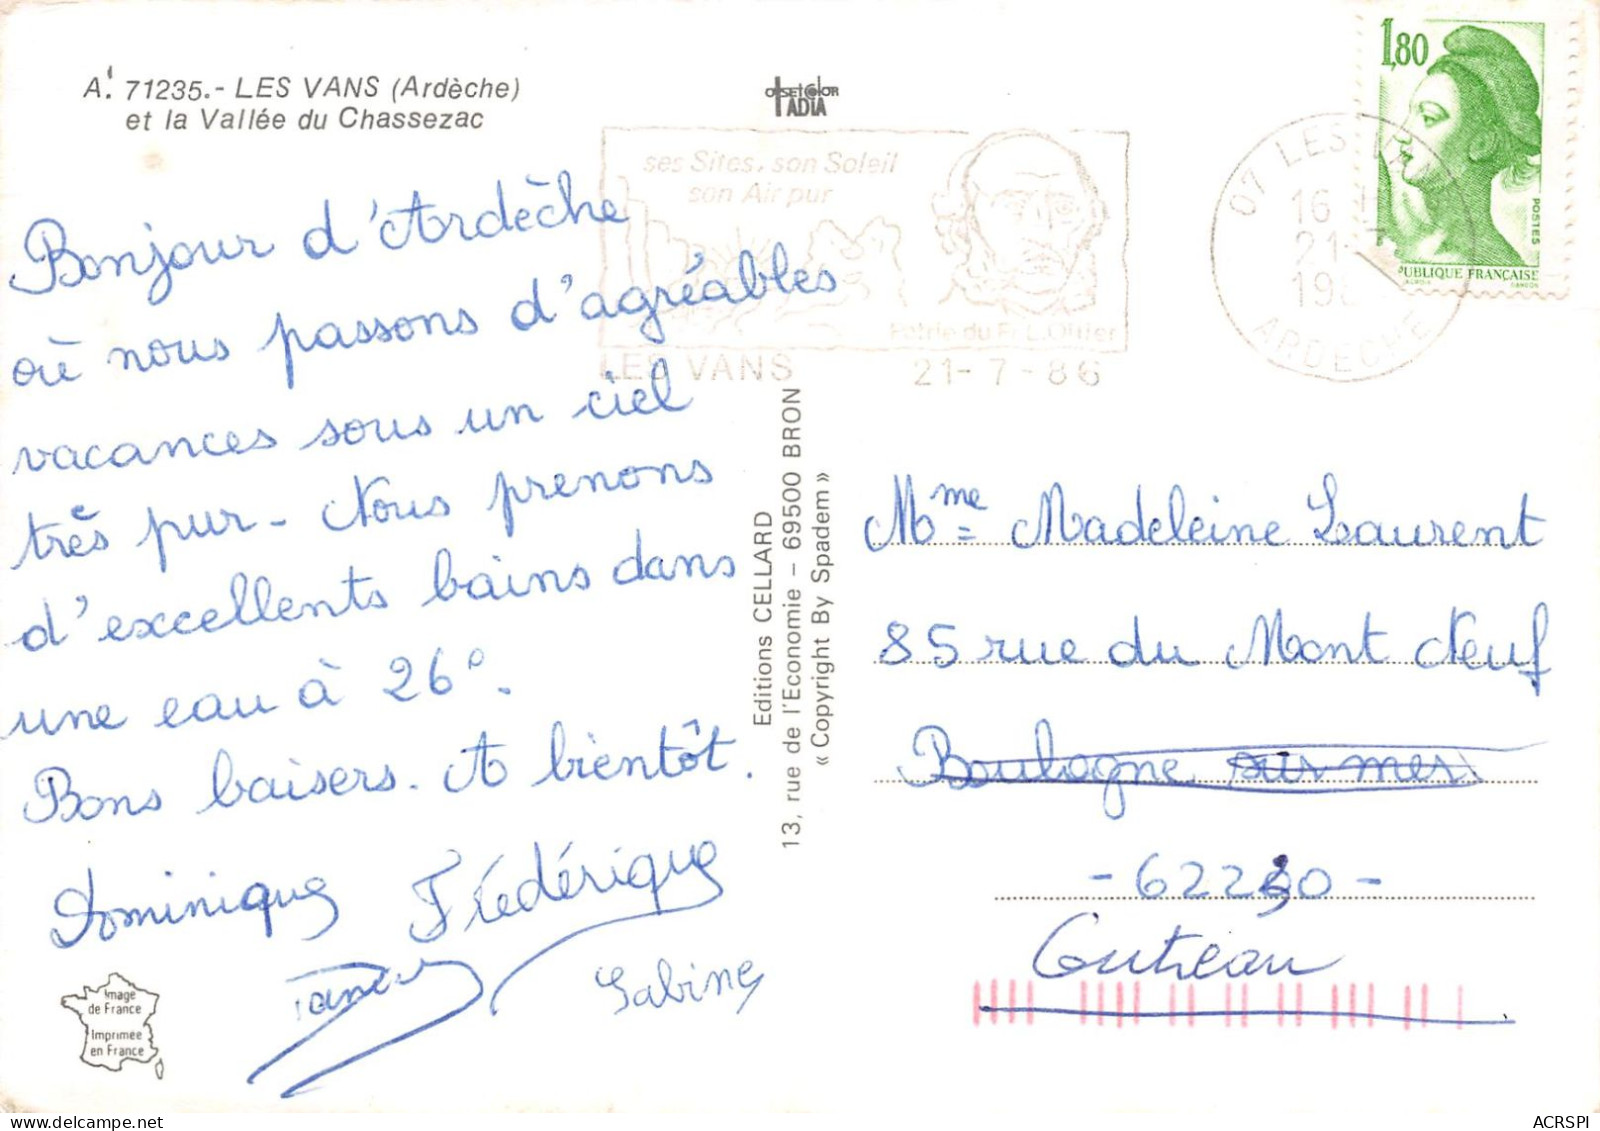 A. 71235.- LES VANS (Ardèche)
et la Vallée du Chassezac
OFFSET COLOR
IADIA
1,80
POSTES
REPUBLIQUE FRANÇAISE
ses Sites, son Soleil
son Air pur
Patrie du Fr L. Ollier
LES VANS 21-7-86
07 LES VANS
16 H
21-7
198
ARDECHE
Bonjour d'Ardèche
où nous passons d'agréables
vacances sous un ciel
très pur - Nous prenons
d'excellents bains dans
une eau à 26°.
Bons baisers. A bientôt.
Dominique Frédérique
Sabine
Image
de France
Imprimée
en France
Editions CELLARD
13, rue de l'Economie - 69500 BRON
« Copyright By Spadem »
Mme Madeleine Laurent
85 rue du Mont Neuf
Boulogne sur mer
-62230-
Outreau
ACRSPI